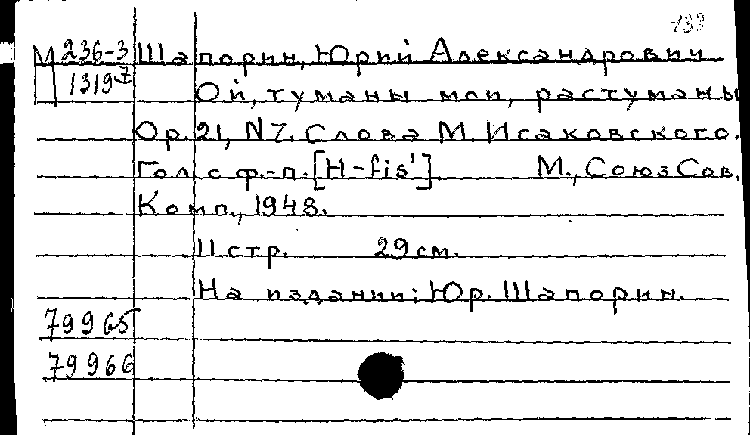 -139
М 236-3 Шапорин, Юрий Александрович
1319 Ой, туманы мои, растуманы
Ор. 21, N 7. Слова М. Исаковского.
Гол. с ф.-п. [H-fis']. М., Союз Сов.
Комп., 1948.
11 стр. 29 см.
На издании: Юр. Шапорин.
79965
79966